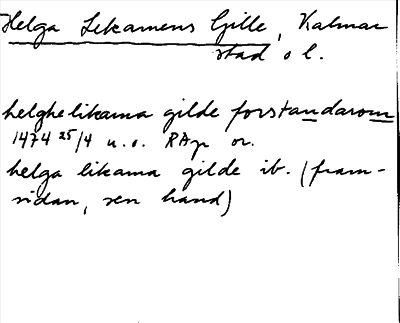 Helga Lekamens Gille, Kalmar
stad o l.
helghelikama gilde forstandarom
1474 25/4 u.o. RAp or.
helga likama gilde ib. (fram-
sidan, sen hand)